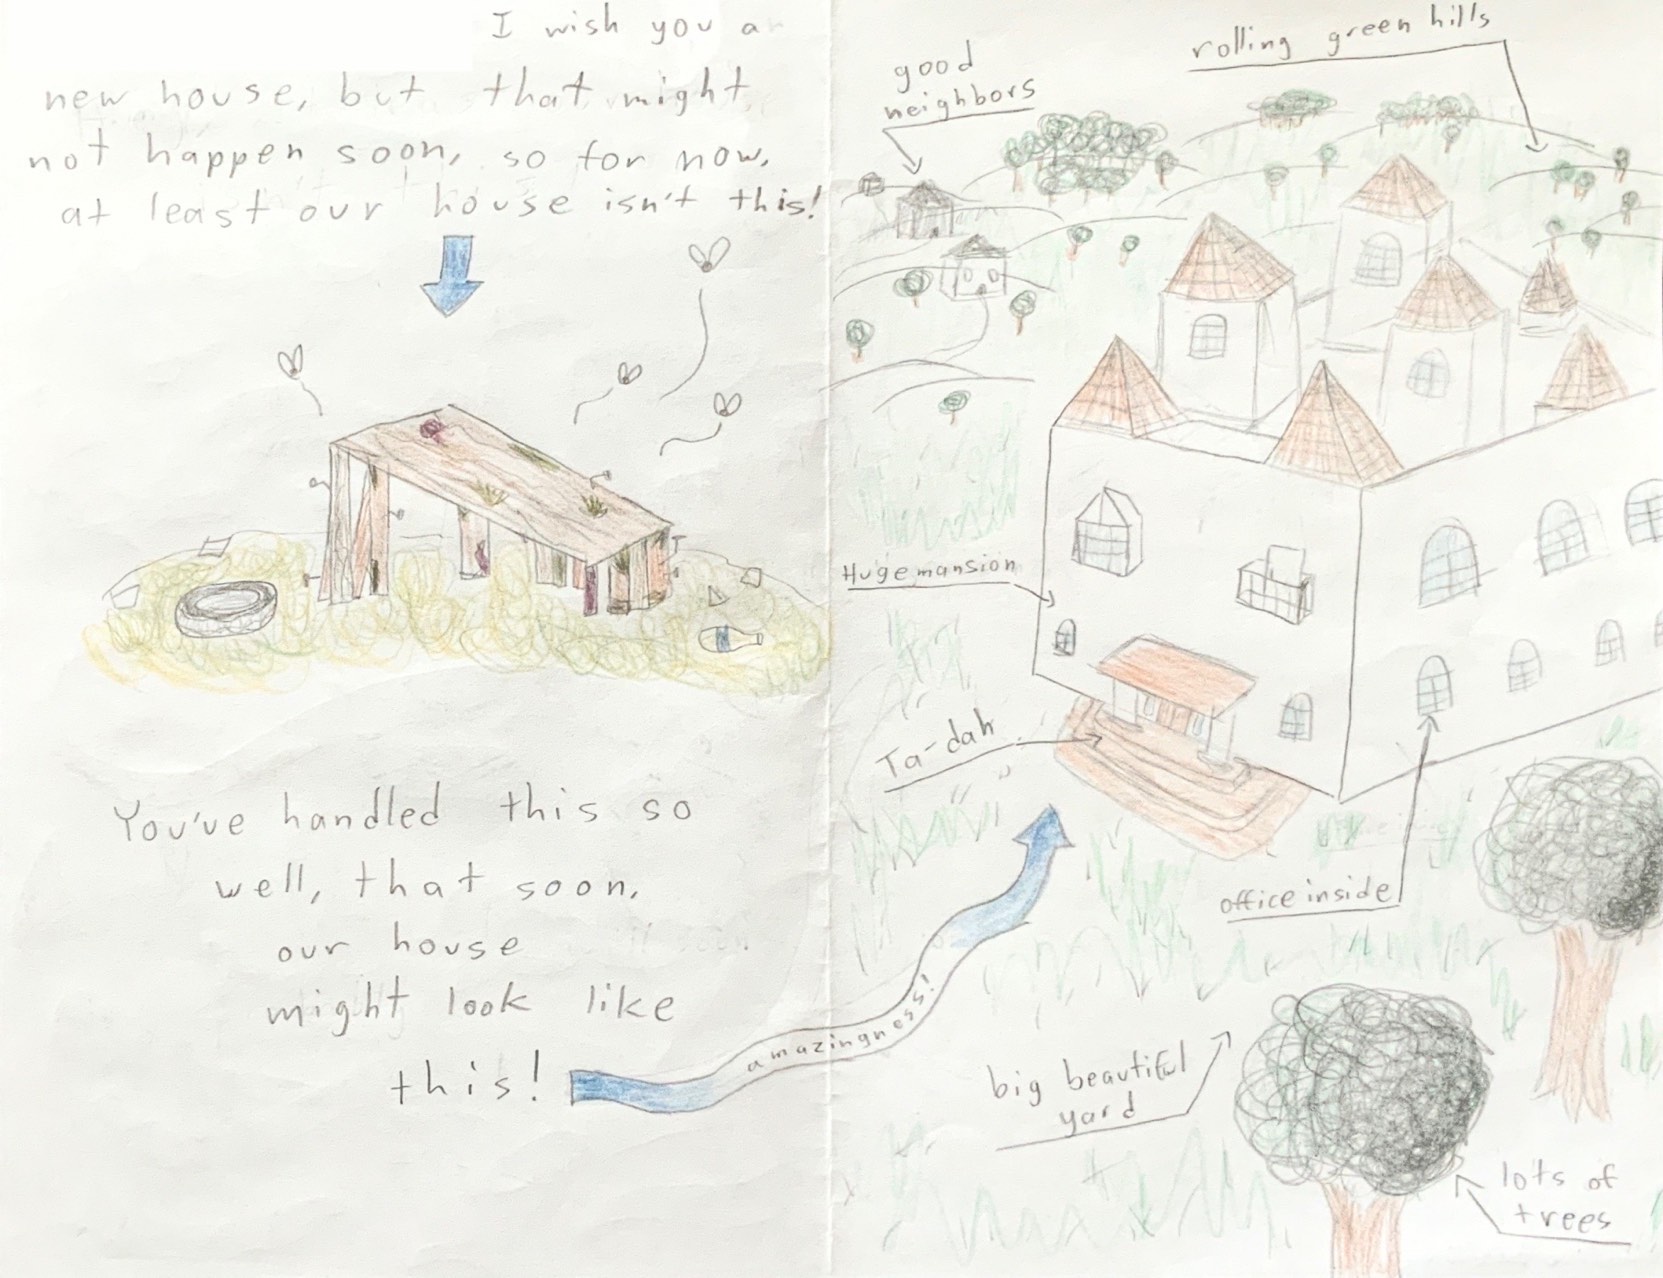 I wish you a
new house, but that might
not happen soon, so for now,
at least our house isn't this!
You've handled this so
well, that soon,
our house
might look like
this!
amazingness!
good
neighbors
rolling green hills
Huge mansion
Ta-dah
office inside
big beautiful
yard
lots of
trees